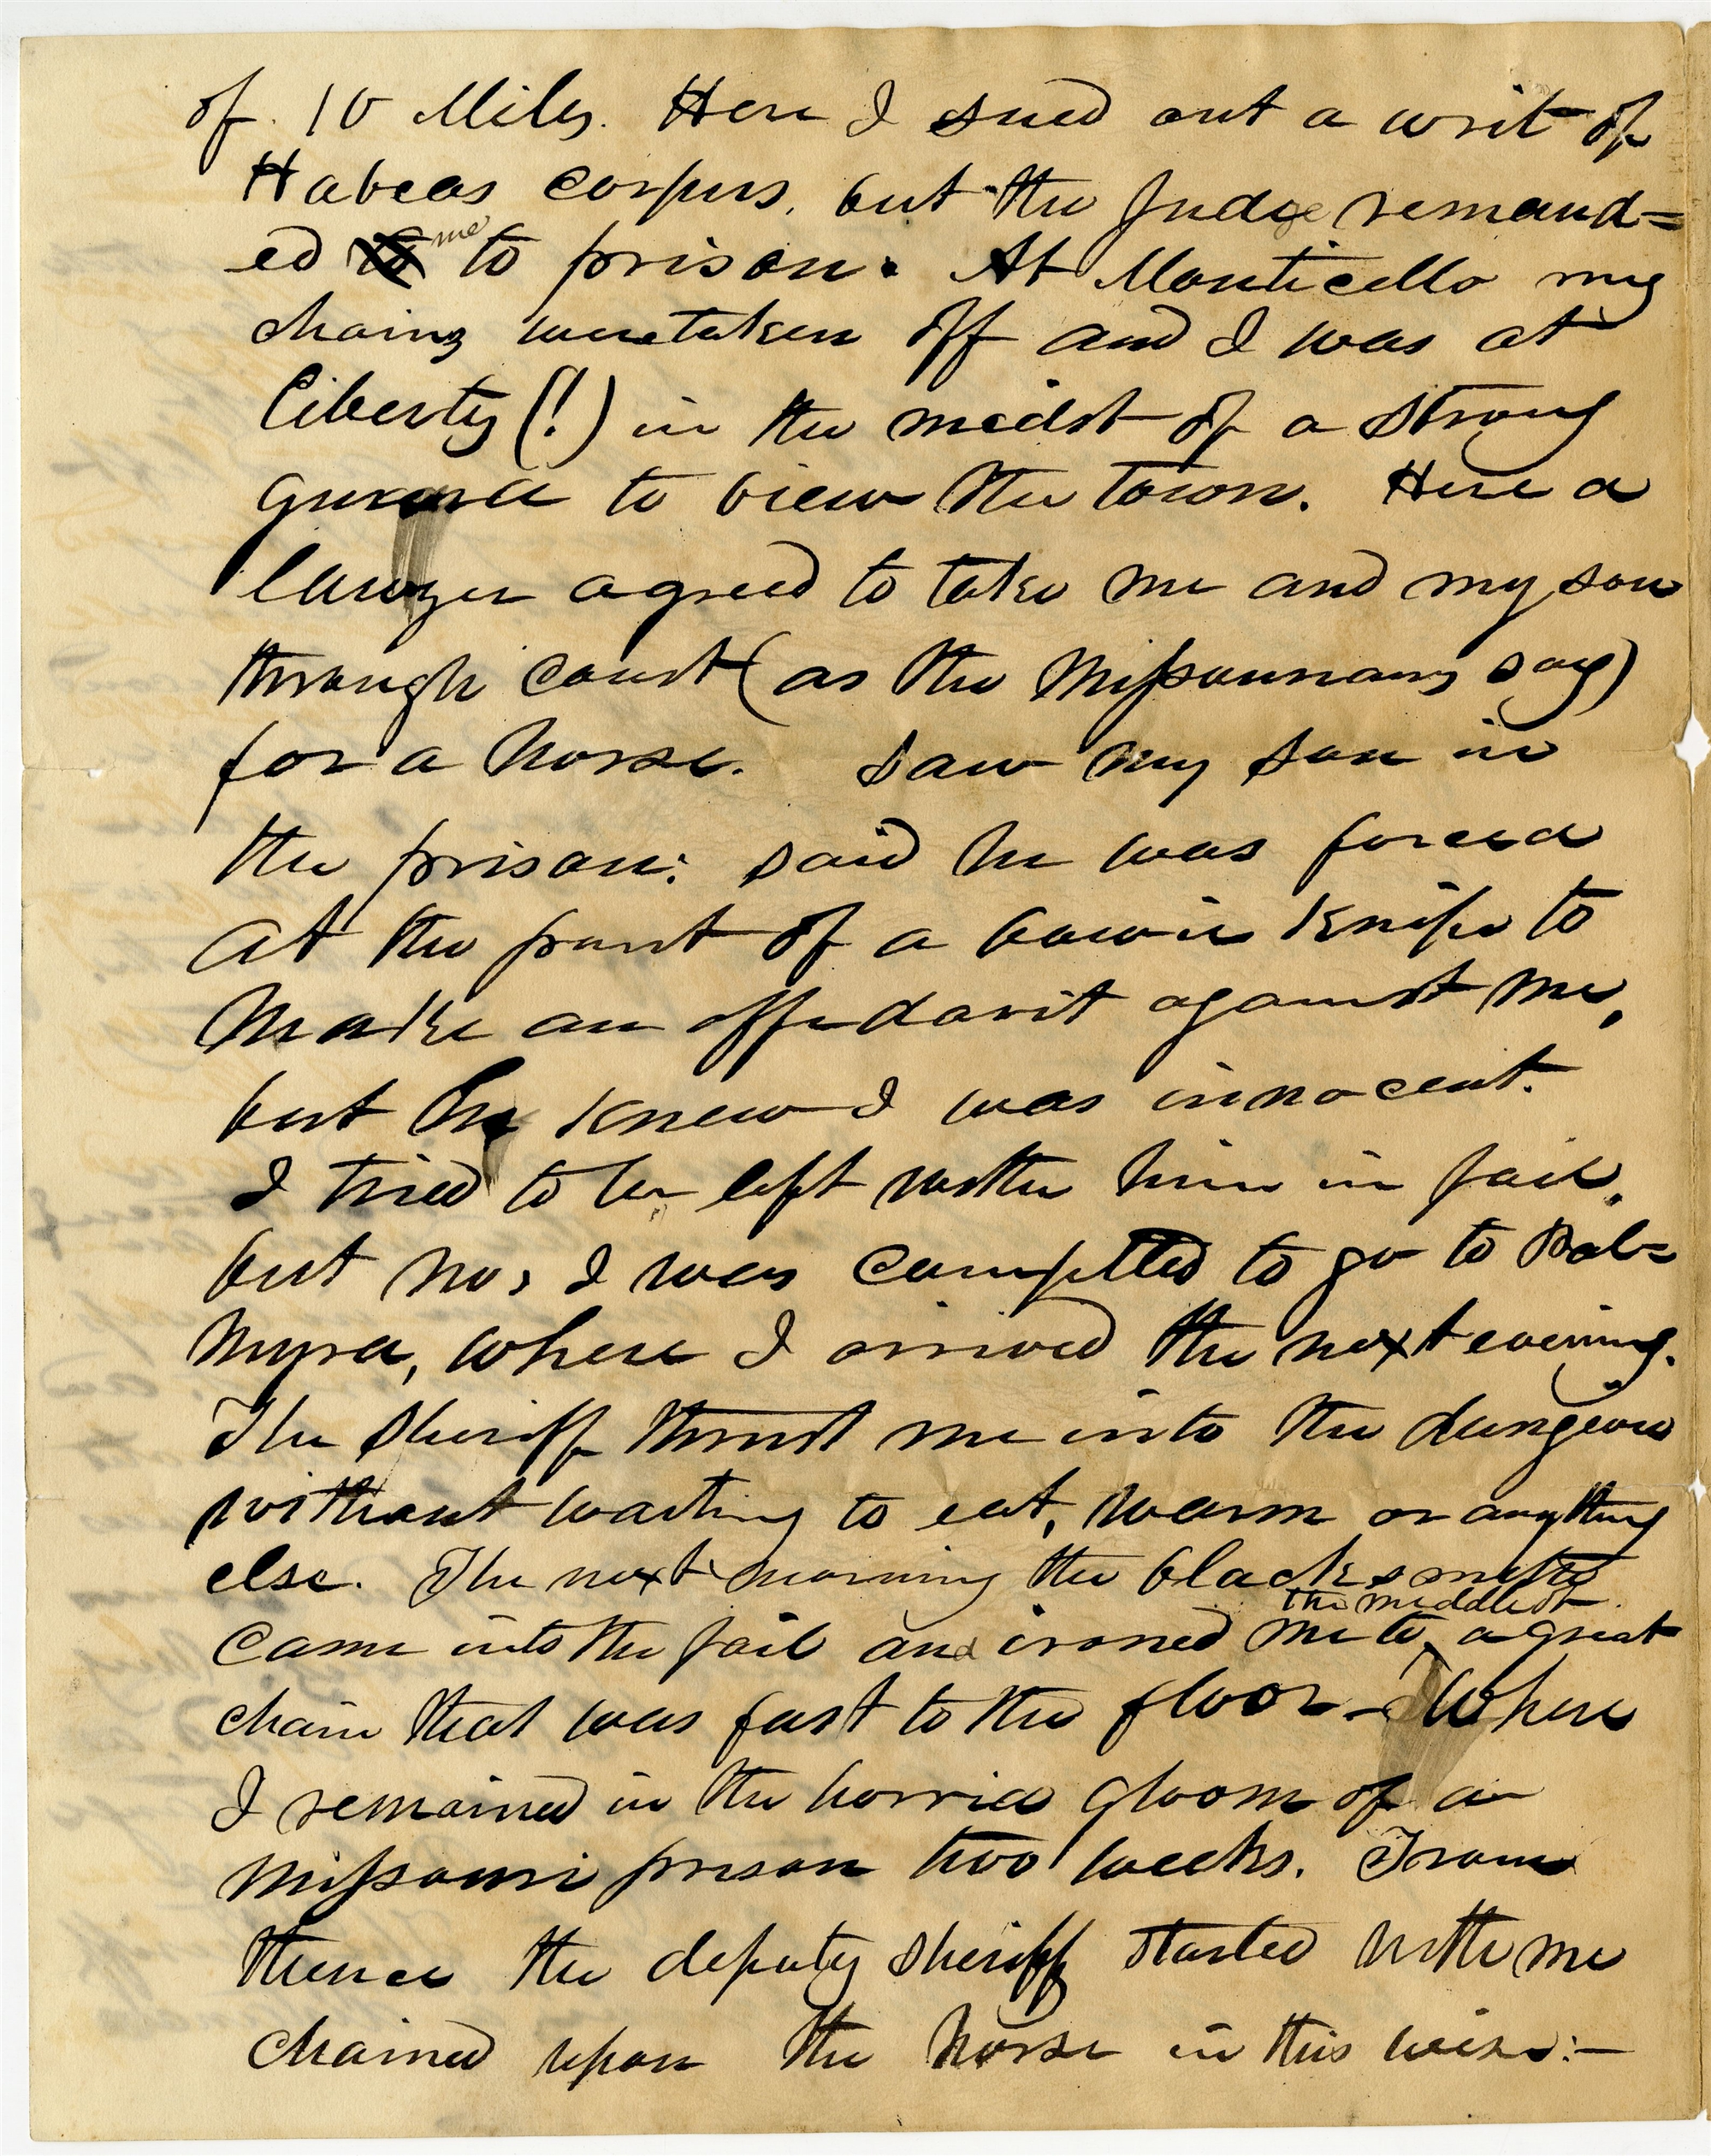 of 10 Miles. Here I sued out a writ of
Habeas corpus, but the Judge remand=
ed to me to prison. At Monticello my
chains were taken off and I was at
liberty (!) in the midst of a strong
guard to view the town. Here a
lawyer agreed to take me and my son
through court (as the Missourians say)
for a horse. Saw my son in
the prison: said he was forced
at the point of a bowie knife to
make an affidavit against me,
but he knew I was innocent.
I tried to be left with him in jail,
but no, I was compelled to go to Pal=
myra, where I arrived the next evening.
The sheriff thrust me into the dungeon
without waiting to eat, warm or anything
else. The next morning the blacksmith
came into the jail and ironed me to the middle of a great
chain that was fast to the floor – where
I remained in the horrid gloom of a
Missouri prison two weeks. From
thence the deputy sheriff started with me
chained upon the horse in this wise:–